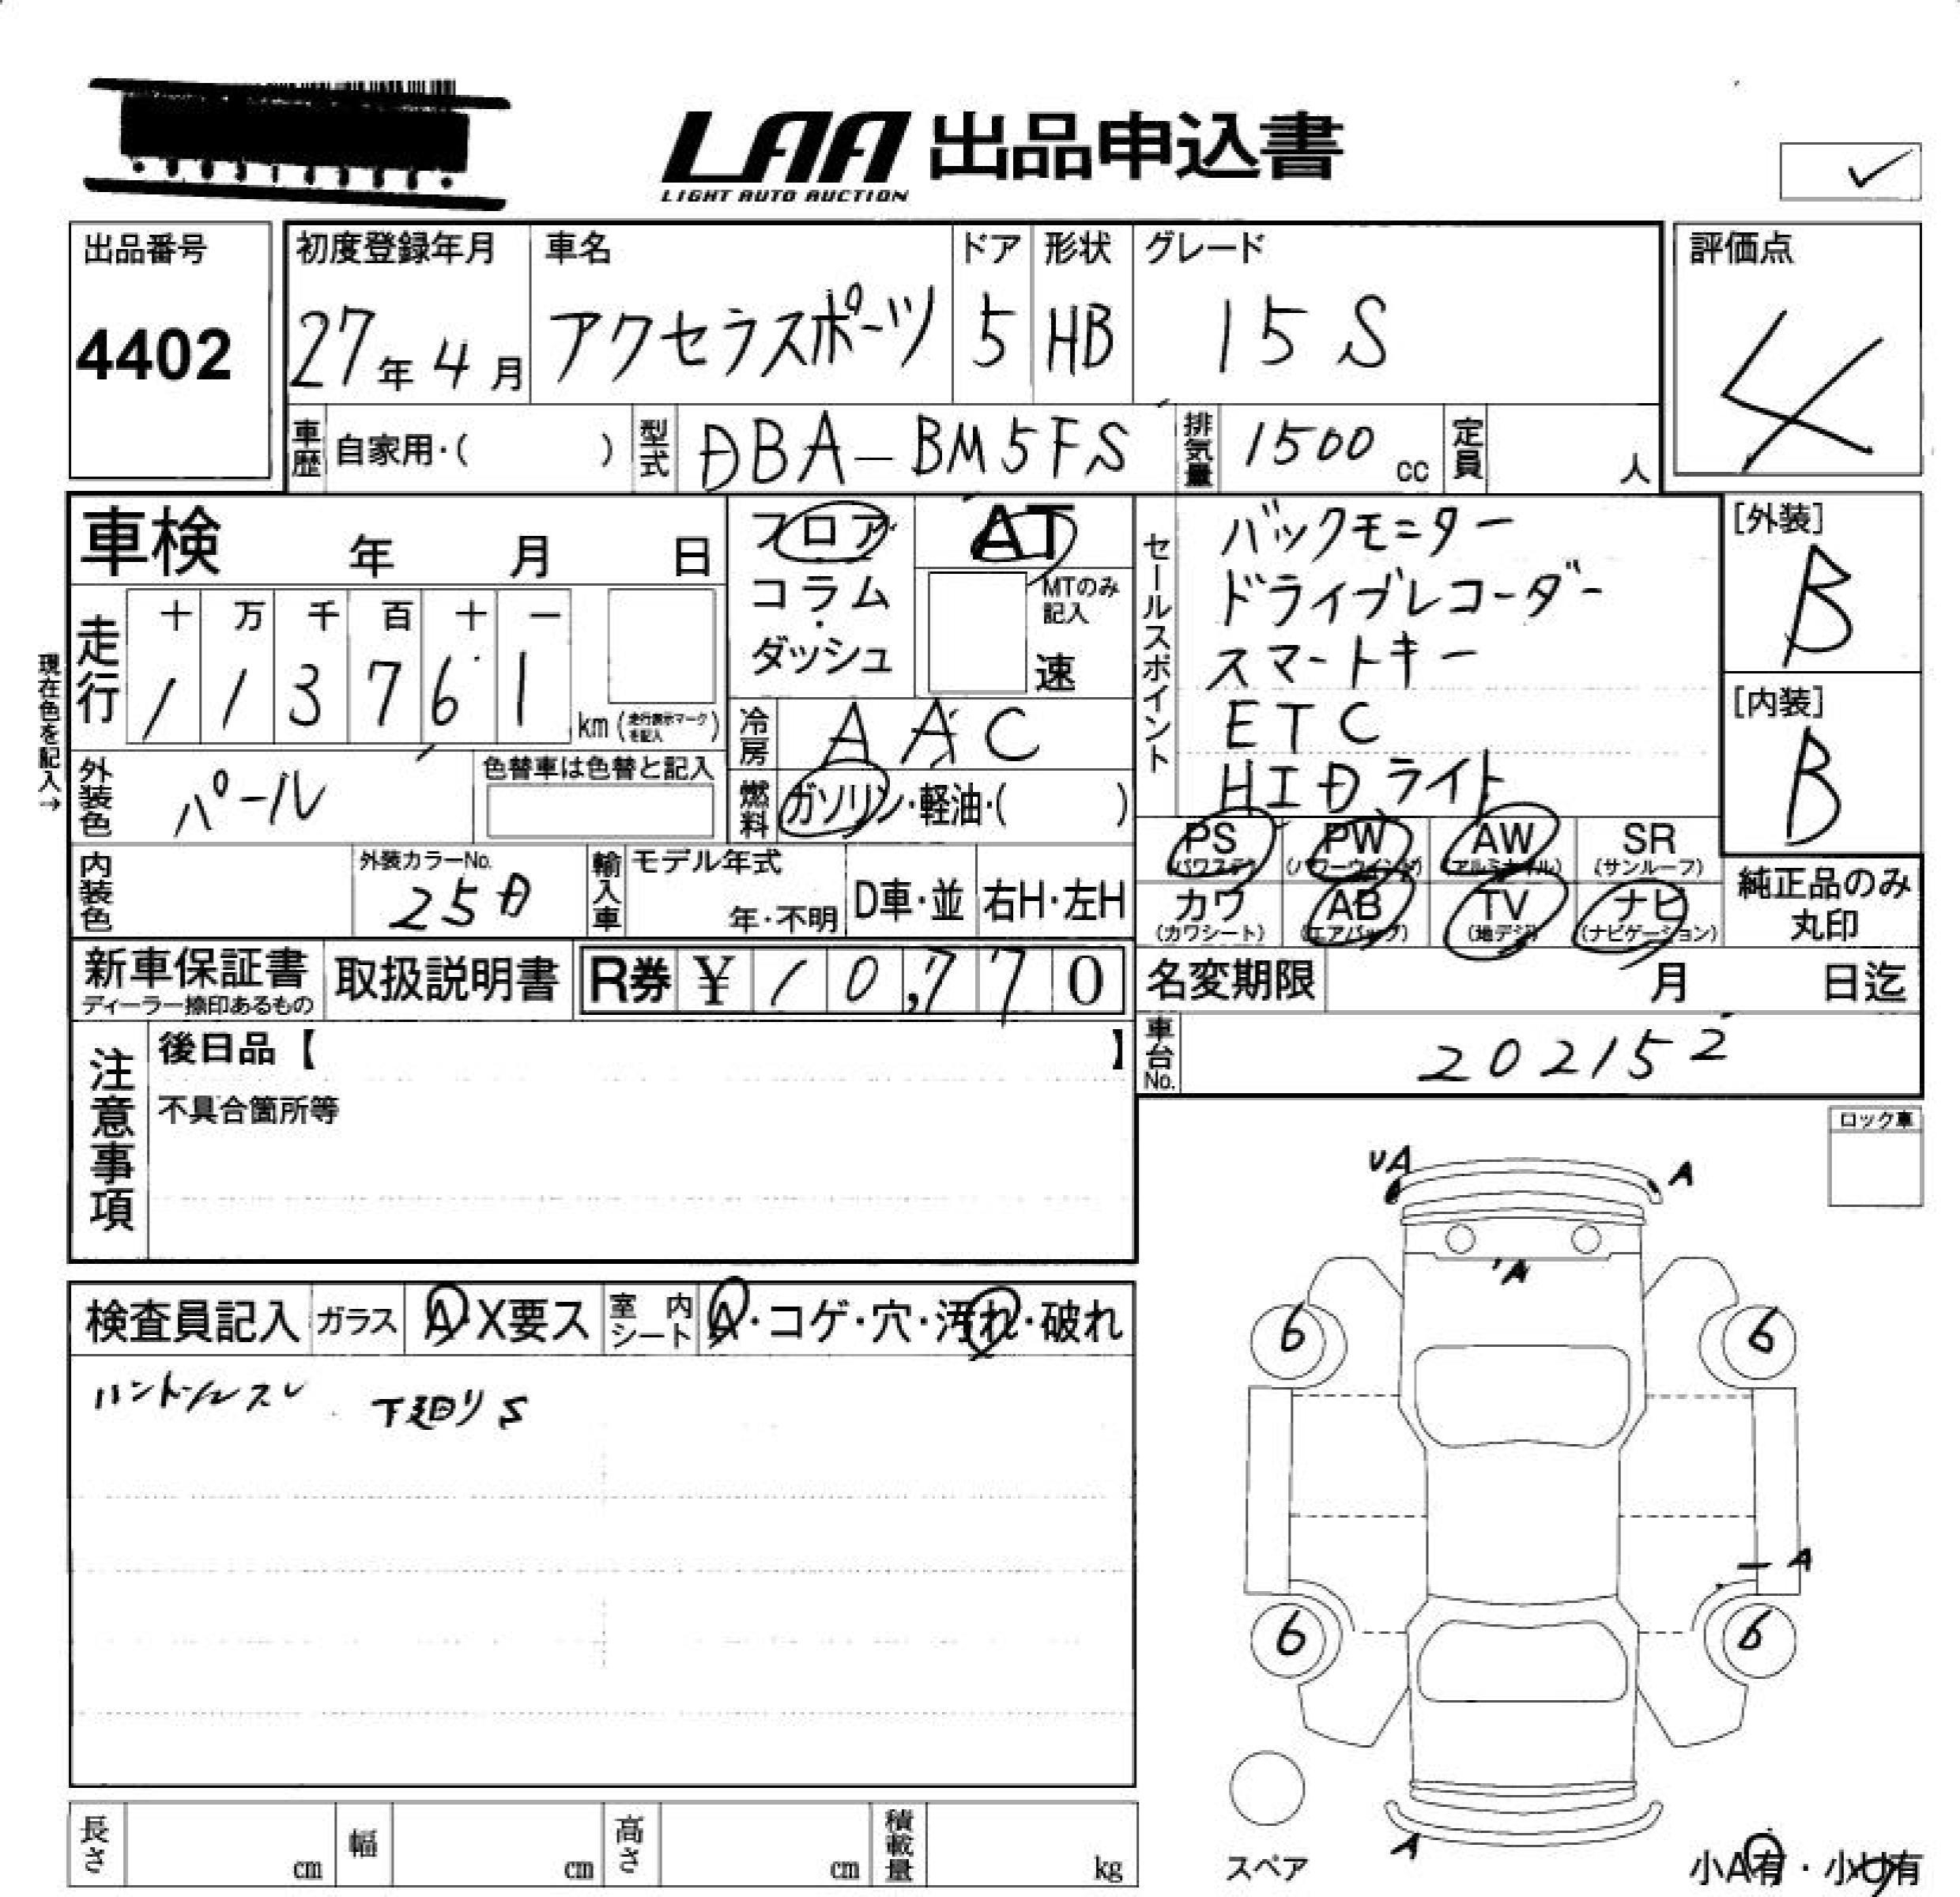 LAA 出品申込書
LIGHT AUTO AUCTION
出品番号
4402
初度登録年月
27年4月
車名
アクセラスポーツ
ドア
5
形状
HB
グレード
15S
評価点
4
車歴 自家用・( )
型式 DBA-BM5FS
排気量 1500 cc
定員 人
車検 年 月 日
フロア
コラム・
ダッシュ
AT
MTのみ記入
速
セールスポイント
バックモニター
ドライブレコーダー
スマートキー
ETC
HIDライト
[外装]
B
[内装]
B
現在色を記入→
走行
十 万 千 百 十 一
1 1 3 7 6 1
km (走行表示マークを記入)
冷房 AAC
外装色 パール
色替車は色替と記入
燃料 ガソリン・軽油・( )
PS (パワステ)
PW (パワーウインドウ)
AW (アルミホイル)
SR (サンルーフ)
カワ (カワシート)
AB (エアバッグ)
TV (地デジ)
ナビ (ナビゲーション)
純正品のみ
丸印
内装色
外装カラーNo.
25D
輸入車
モデル年式
年・不明
D車・並
右H・左H
新車保証書
ディーラー捺印あるもの
取扱説明書
R券 ¥ 10,770
名変期限 月 日迄
車台No. 202152
注意事項
後日品【 】
不具合箇所等
ロック車
UA
A
'A
検査員記入
ガラス A X要ス
室内シート A・コゲ・穴・汚れ・破れ
ハンドルスレ 下廻りS
6 6
A
6 6
A
スペア
小A有・小U有
長さ cm
幅 cm
高さ cm
積載量 kg